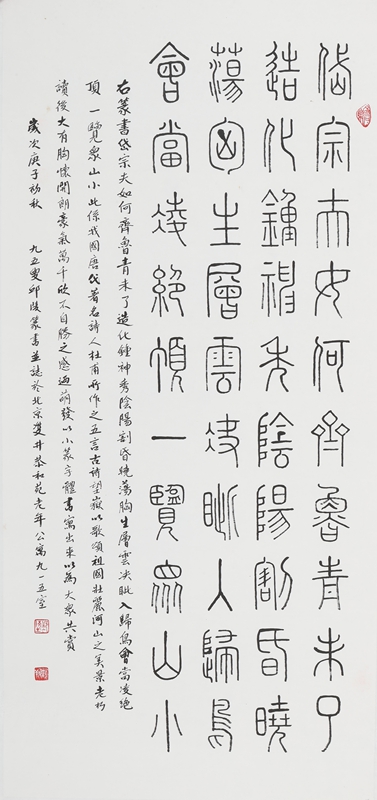 岱宗夫如何齊魯青未了
造化鍾神秀陰陽割昏曉
蕩胸生層雲決眦入歸鳥
會當凌絕頂一覽眾山小
右篆書岱宗夫如何齊魯青未了造化鍾神秀陰陽割昏曉蕩胸生層雲決眦入歸鳥會當凌絕
頂一覽眾山小此係我國唐代著名詩人杜甫所作之五言古詩望嶽以歌頌祖國壯麗河山之美景老朽
讀後大有胸懷開朗豪氣萬千欣不自勝之感迺萌發以小篆字體書寫出來以為大眾共賞
歲次庚子初秋 九五叟邱陵篆書並誌於北京雙井恭和苑老年公寓九一五室